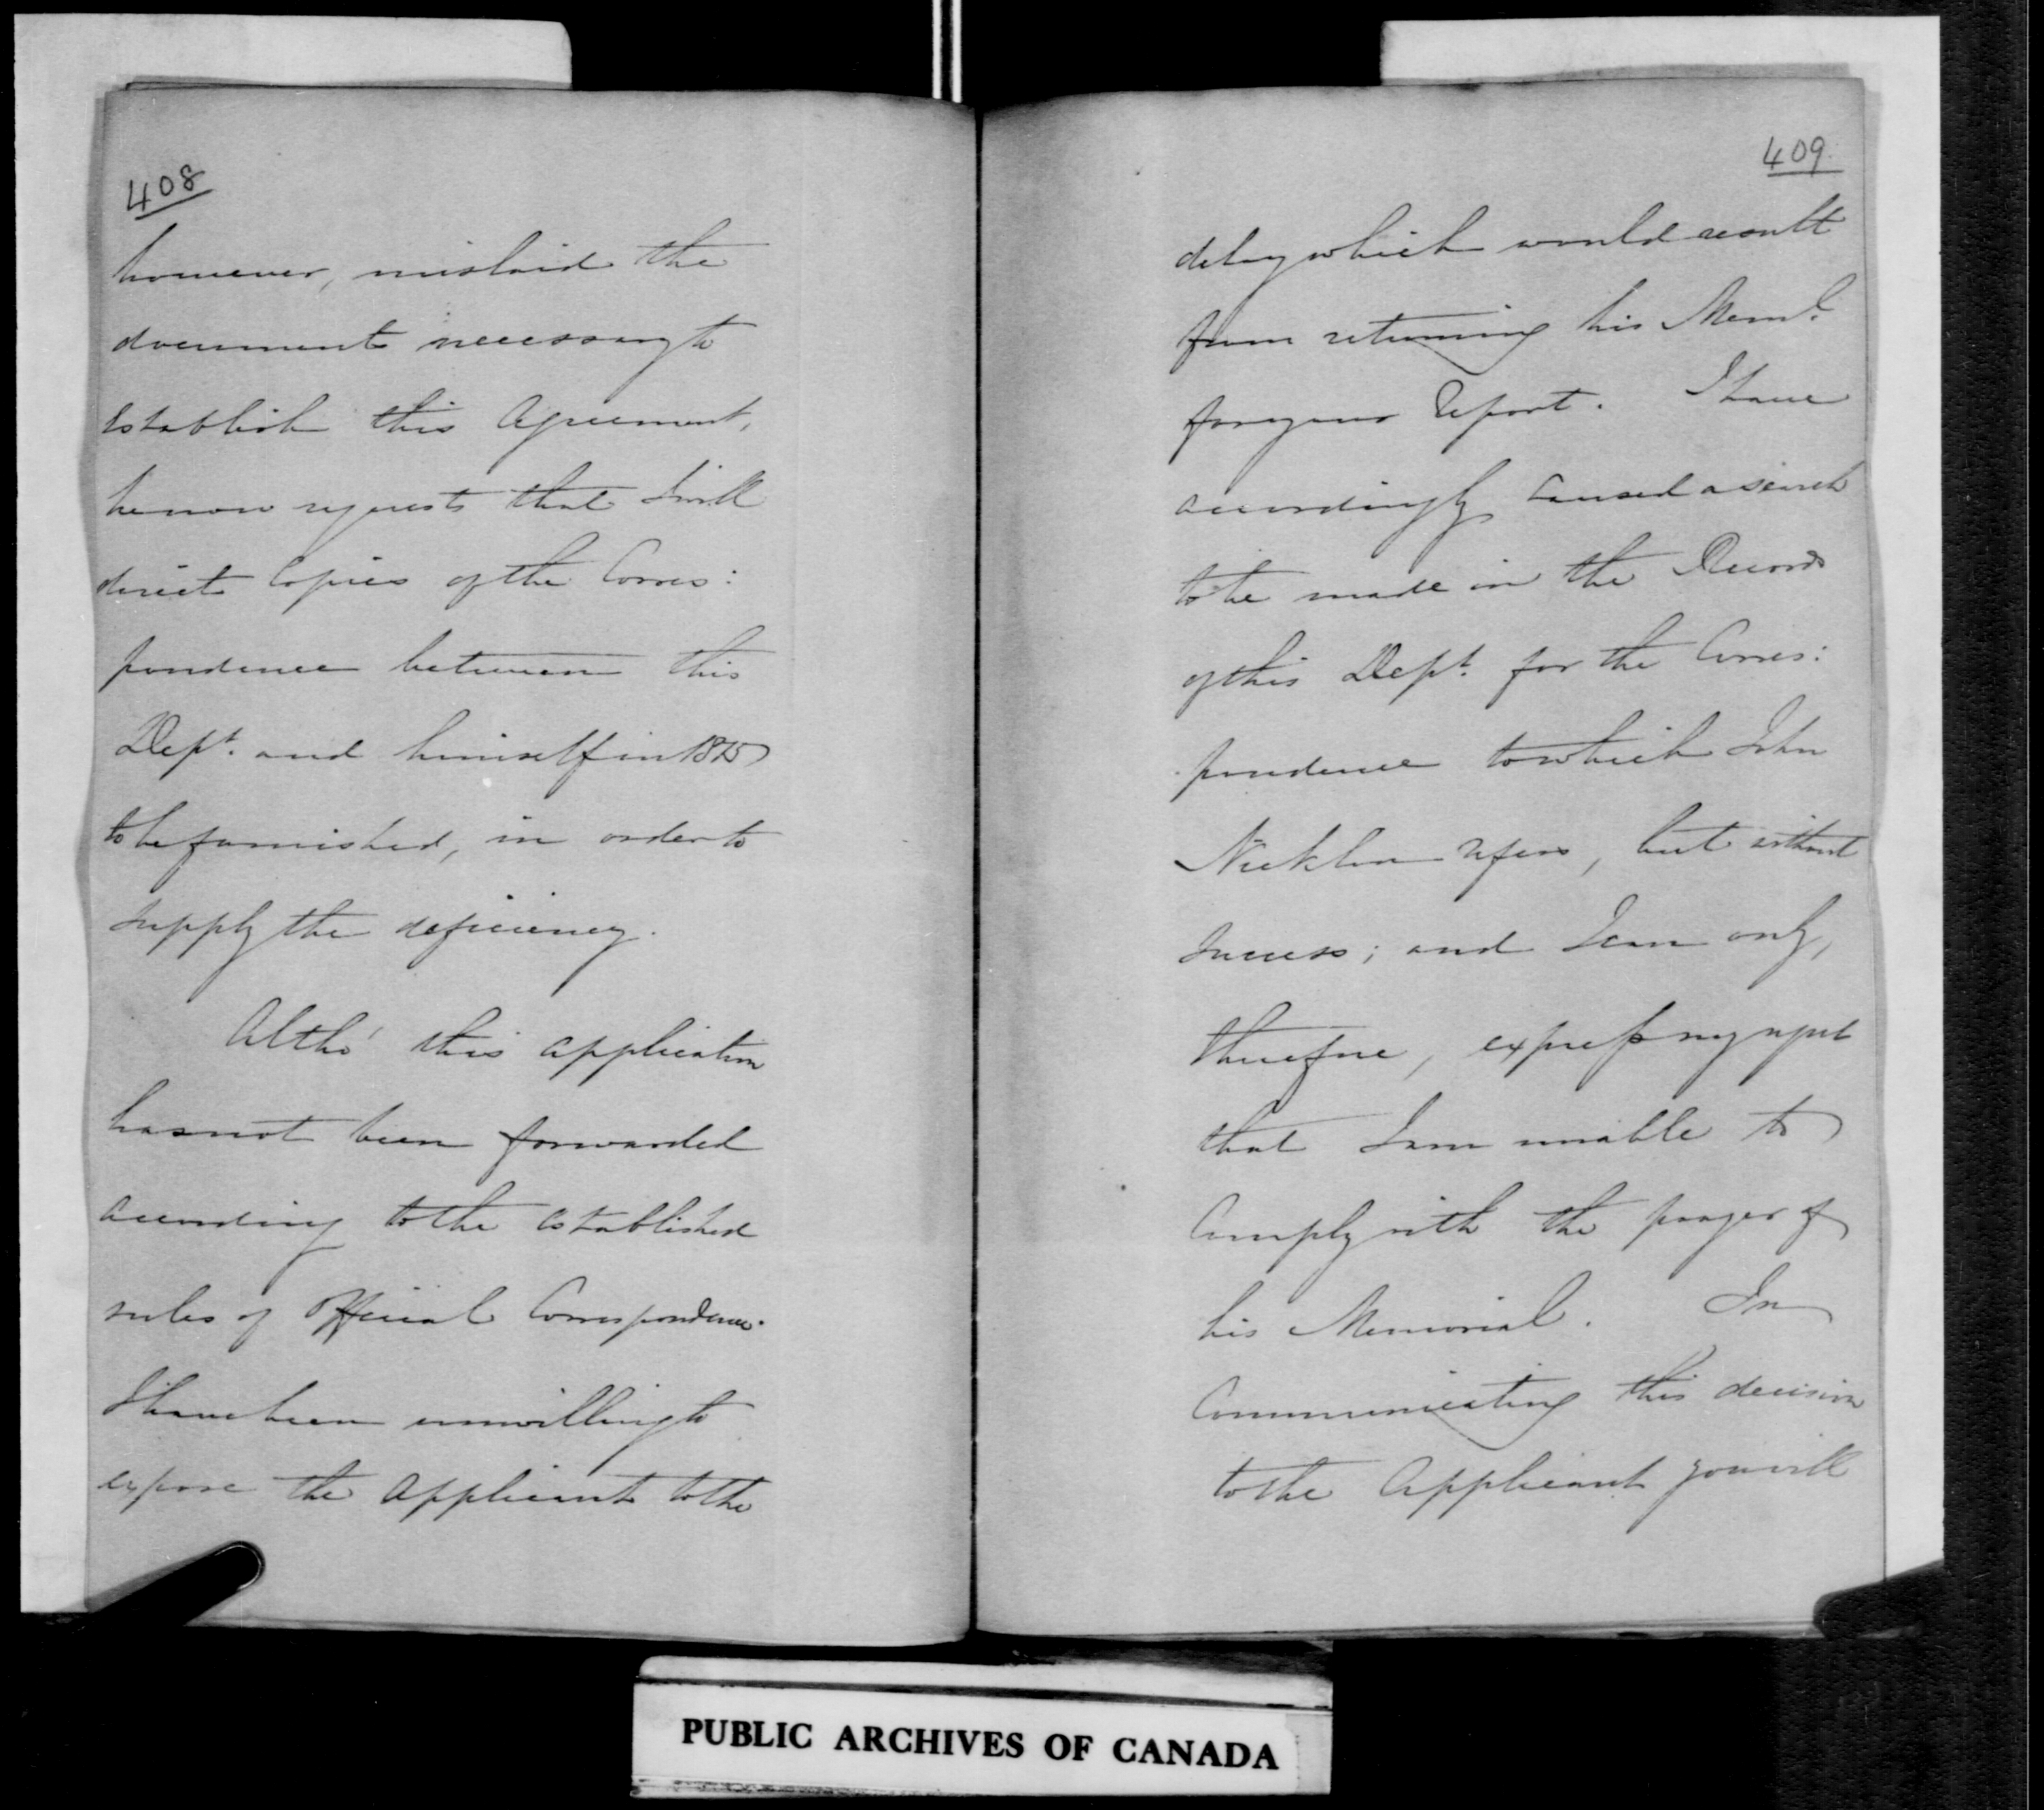 408
however, mislaid the
documents necessary to
establish this Agreement,
he now requests that I will
direct Copies of the Corres:
pondence between this
Dept. and himself in 1815
to be furnished, in order to
supply the deficiency.
Altho' this application
has not been forwarded
according to the established
rules of Official Correspondence.
I have been unwilling to
expose the Applicant to the
409.
delay which would result
from returning his Meml.
for your Report. I have
accordingly caused a search
to be made in the Records
of this Dept. for the Corres:
pondence to which John
refers, but without
success; and I can only,
therefore, express my regret
that I am unable to
Comply with the prayer of
his Memorial. In
Communicating this decision
to the Applicant you will
PUBLIC ARCHIVES OF CANADA